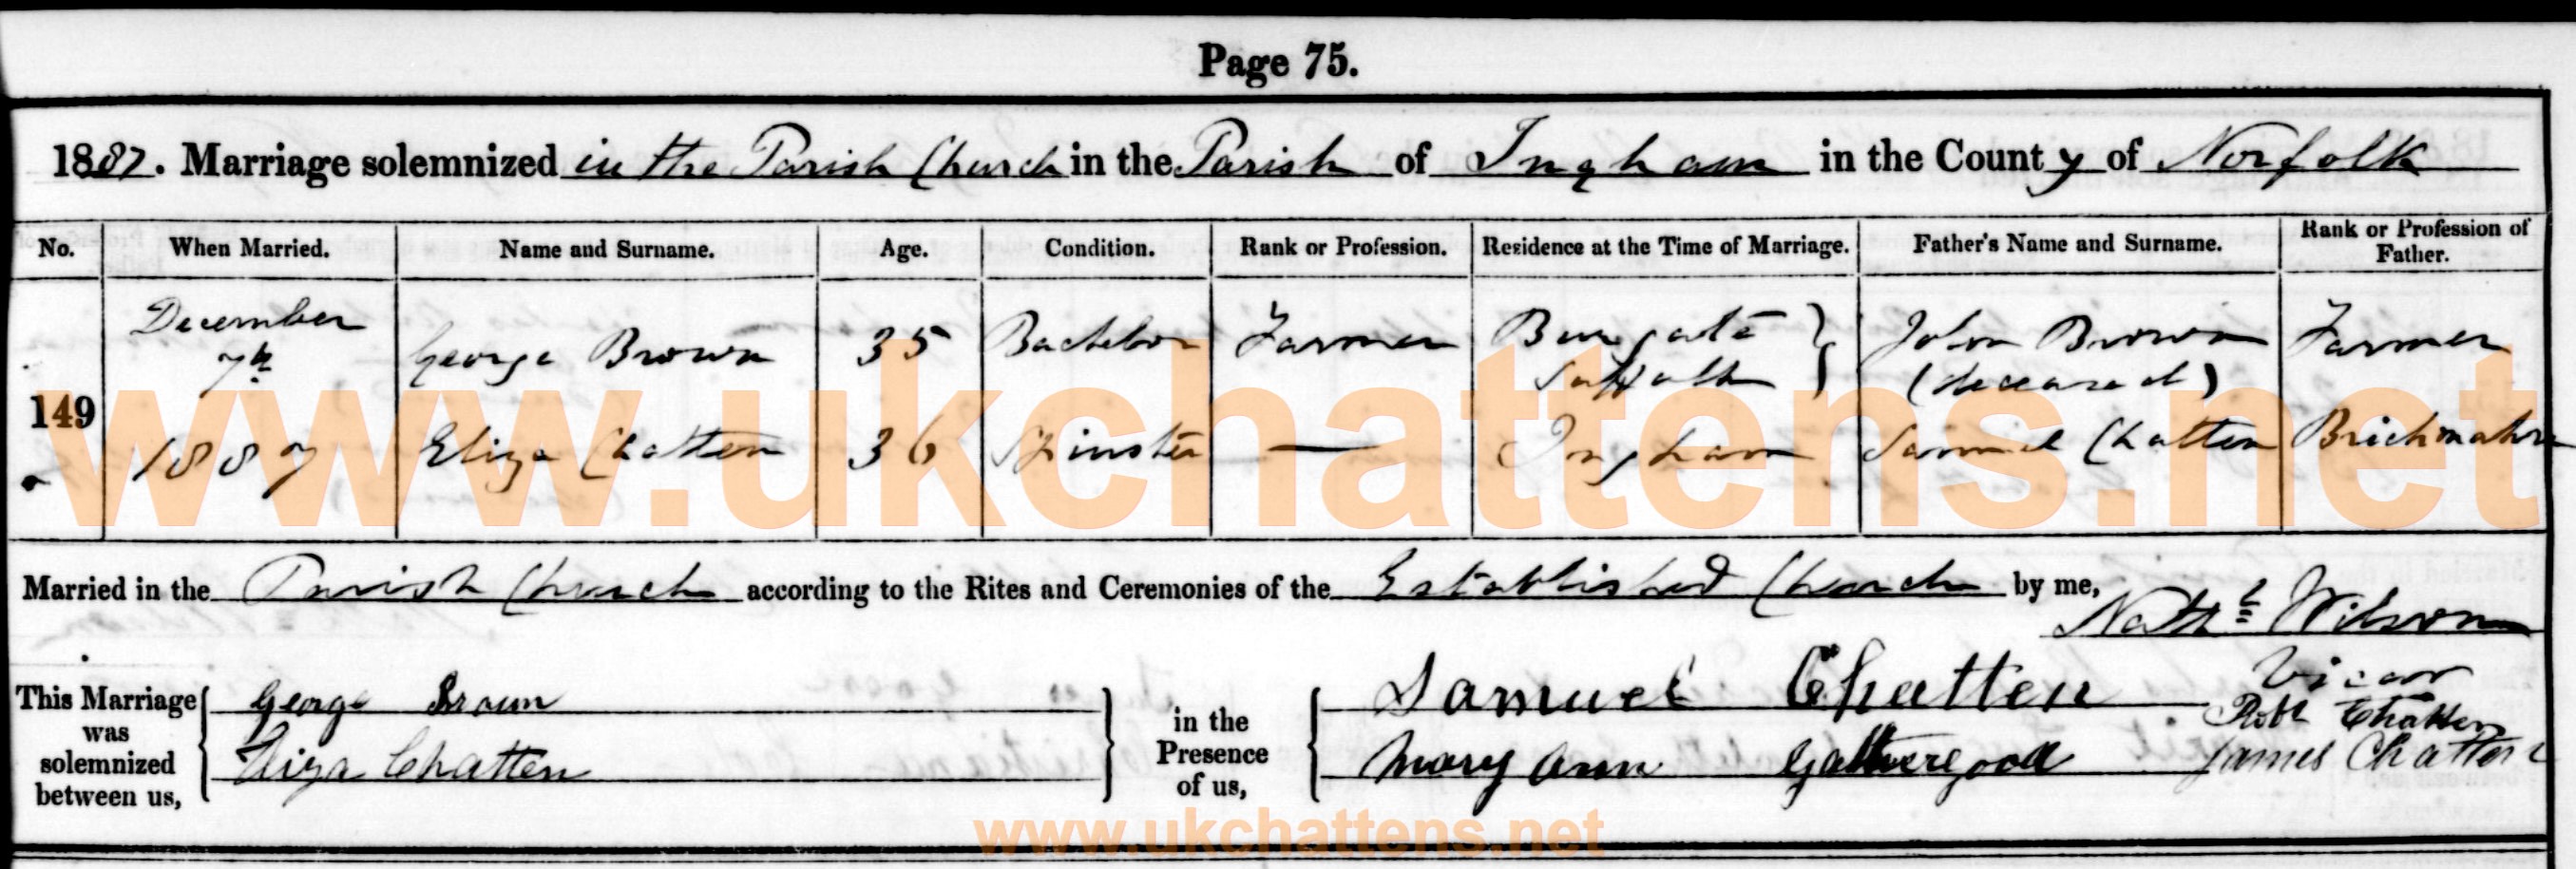 Page 75.
1887. Marriage solemnized in the Parish Church in the Parish of Ingham in the County of Norfolk
No. When Married. Name and Surname. Age. Condition. Rank or Profession. Residence at the Time of Marriage. Father's Name and Surname. Rank or Profession of Father.
December 7th George Brown 35 Bachelor Farmer Burgate Suffolk John Brown (deceased) Farmer
149 1887 Eliza Chatten 36 Spinster — Ingham Samuel Chatten Brickmaker
www.ukchattens.net
Married in the Parish Church according to the Rites and Ceremonies of the Established Church by me,
Nathl Wilson
Vicar
This Marriage was solemnized between us,
George Brown
Eliza Chatten
in the Presence of us,
Samuel Chatten
Mary Ann Gathergood
Robt Chatten
James Chatten
www.ukchattens.net